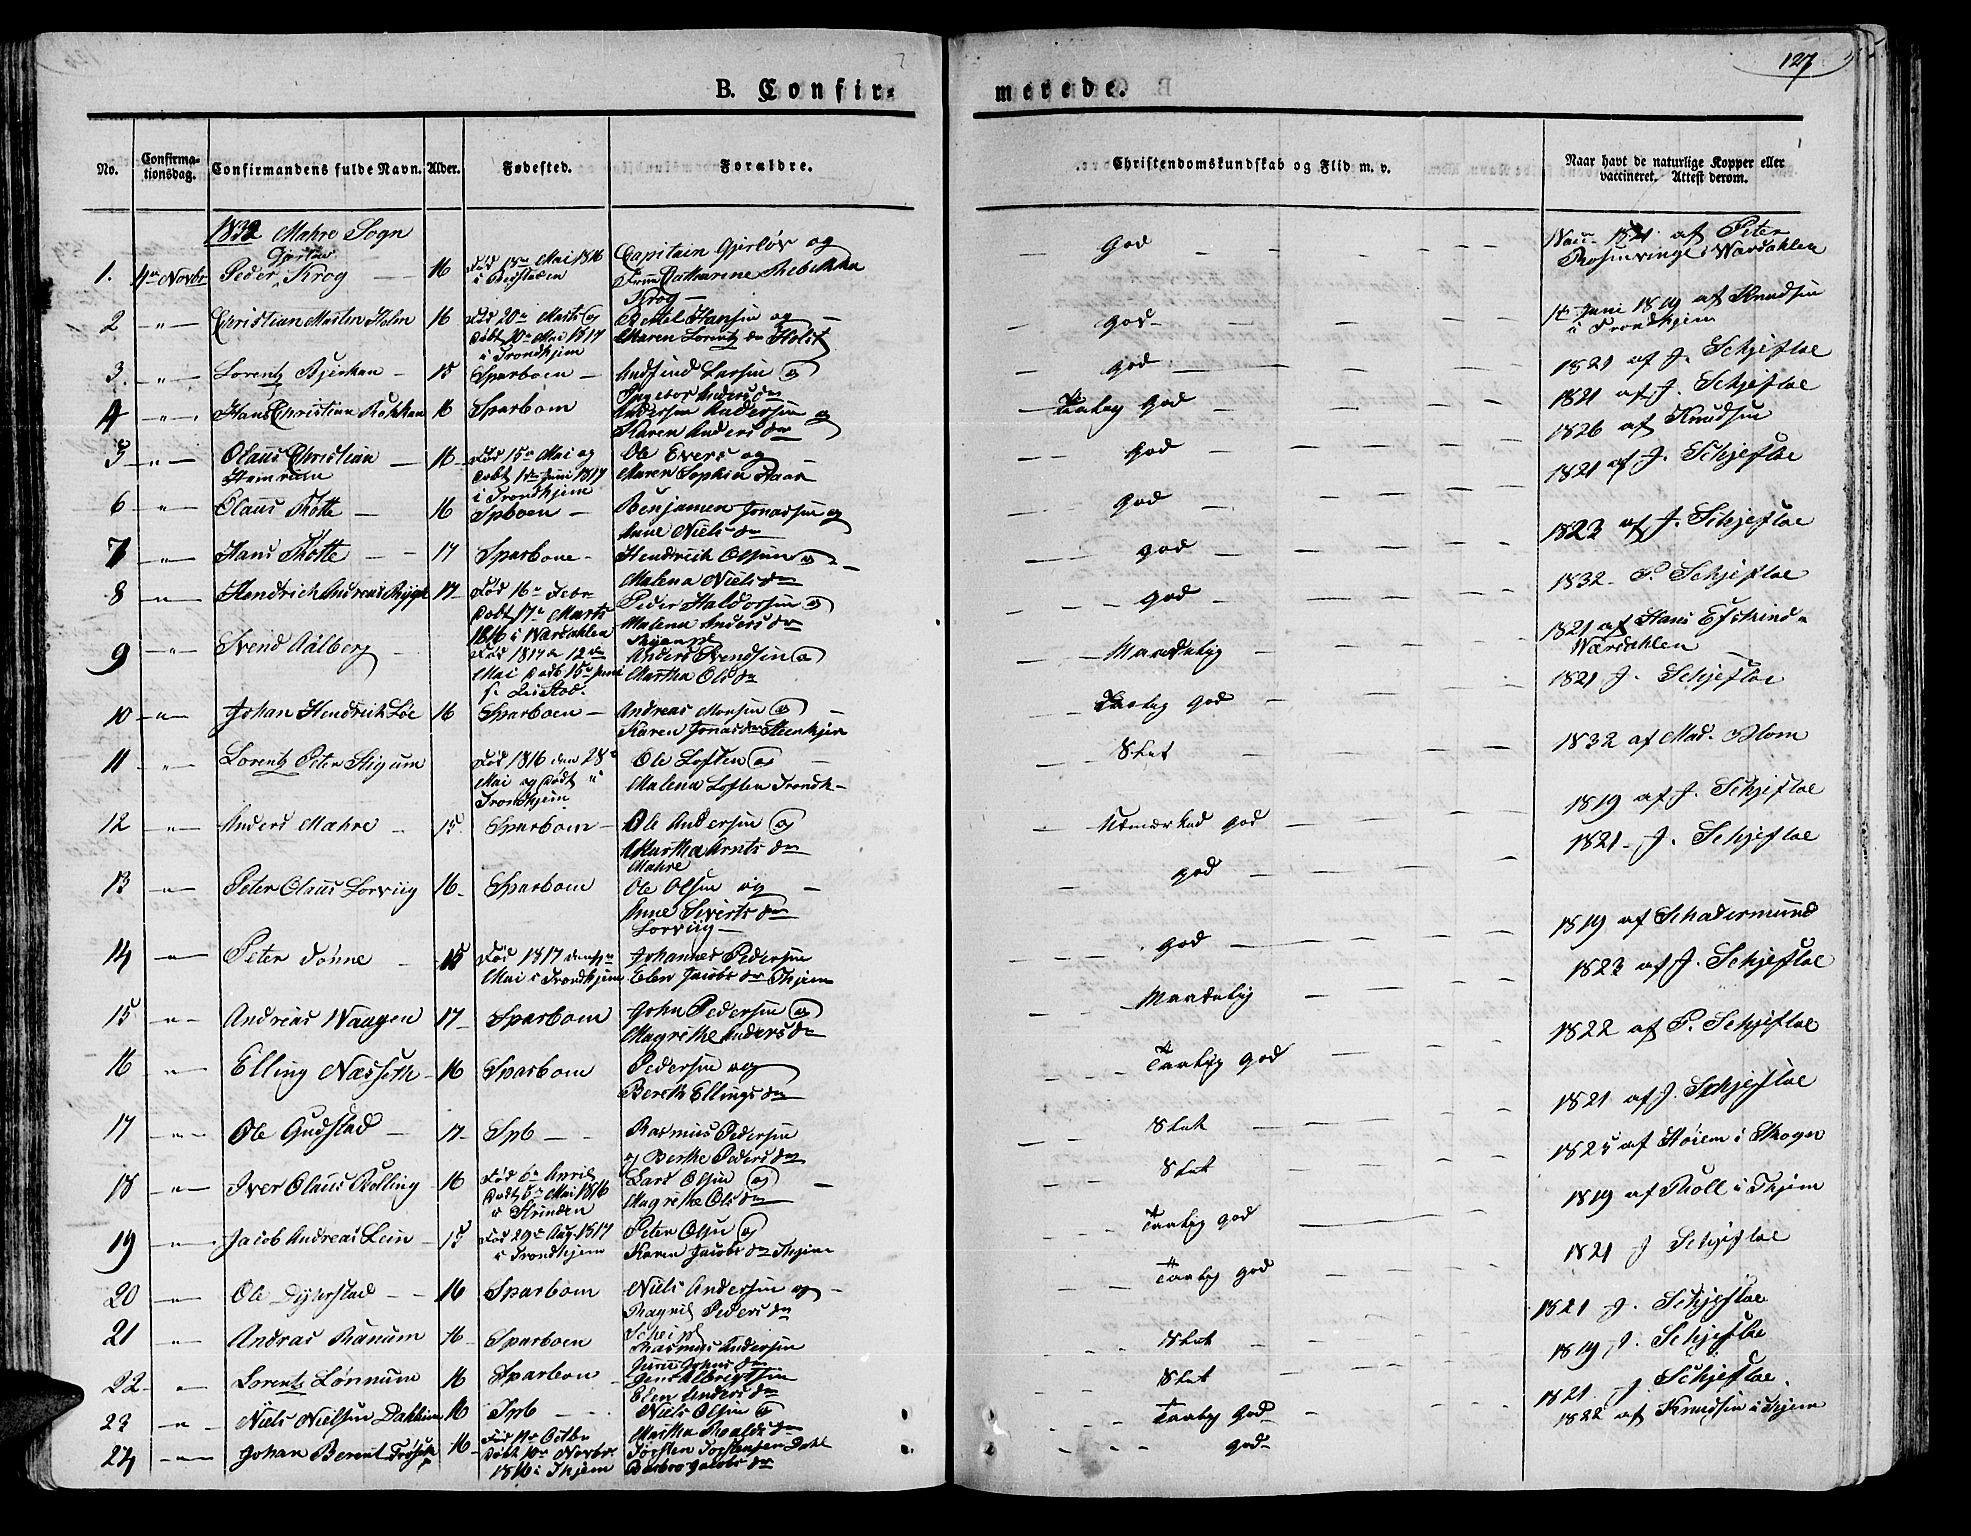 127
B. Confir-
merede.
No.
Confirma-
tionsdag.
Confirmandens fulde Navn.
Alder.
Fødested.
Forældre.
Christendomskundskab og Flid m. v.
Naar havt de naturlige Kopper eller
vaccineret. Attest derom.
1832 Mahre Sogn
Gjerløv
1. 4de Novbr Peder Krog 16 Fød 18de Mai 1816 Capitain Gjerløv og God 1821 af Peter
i Bergstaden Frue Catharine Rebekka Rosenvinge i Værdahlen
Krog
2 Christian Martin Holm 16 Fød 20de Marts og Bertel Hansen og god Juni 1819 af Knudsen
døbt 10de Mai 1817 Maren Lorentz dr Holst i Trondhjem
i Trondhjem
3. Lorentz Bjerkan 15 Sparboen Andfind Larsen og god 1821 af J. Schjefloe
Ingebor Anders dr
4 Hans Christian Rokkan 16 Sparboen Andersen Andersen og Taalig God 1821 af J. Schjefloe
Karen Anders dr 1826 af Knudsen
5 Olaus Christian 16 Fød 15de Mai og Ole Evers og God 1821 af J. Schjefloe
døbt 1ste Juni 1817 Maren Sophia Haar
i Trondhjem
6 Olaus Rotte 16 Spboen Benjamen Jonassen og god 1823 af J. Schjefloe
Anne Niels dr
7 Hans Rotte 17 Sparboen Hendrich Olsen og god 1832 P. Schjefloe
Malena Niels dr
8 Hendrich Andreas Rygh 17 Fød 16de Febr Peder Haldorsen og god 1821 af Hans Efskind
døbt 17de Marts Malena Anders dr Værdahlen
1816 i Værdahlen
9 Svend Aalberg Fød 1817 12de Anders Svendsen og Maadelig 1821 J. Schjefloe
Mai døbt 15de Juni Martha Ols dr
10 Johan Hendrich Løe 16 Sparboen Andreas Monsen og Taalig god 1832 af Mad. Blom
Karen Jonas dr Steenkjer
11 Lorentz Peter Stigum Fød 1816 den 28de Ole Loften og Slet 1819 af J. Schjefloe
Mai og døbt i Malena Loften Trondh
Trondhjem
12 Anders Mahre 15 Sparboen Ole Andersen og Udmærked god 1821 J. Schjefloe
Martha Arnts dr
Mahre
13 Peter Olaus Lorviig 16 Sparboen Ole Olsen og god 1819 af Schadermund
Anne Siverts dr
Lorviig
14 Peter Tønne 15 Fød 1817 den Johannes Pedersen god 1823 af J. Schjefloe
Mai i Trondhjem Elen Jacobs dr Thjem
15 Andreas Waagen 17 Sparboen John Pedersen og Maadelig 1822 af P. Schjefloe
Magrethe Anders dr
16 Elling Næsseth 16 Sparboen Pedersen og Taalig god 1821 af J. Schjefloe
Bereth Ellings dr
17 Ole Gudstad 17 Spb Rasmus Pedersen Slet 1825 af Høiem i Skogn
og Berthe Peders dr
18 Iver Olaus Rolling 16 Fød 6te April Lars Olsen og Slet 1819 af Roll i Thjem
døbt 5te Mai 1816 Magrethe Ols dr
i Strinden
19 Jacob Andreas Lein 15 Fød 29de Aug 1817 Peter Olsen og Taalig god 1821 J Schjefloe
i Trondhjem Karen Jacobs dr Thjem
20 Ole Dyrstad 16 Sparboen Niels Andersen og Taalig god 1821 J. Schjefloe
Ragnil Peders dr
21 Andras Rånum 16 Sparboen Rasmus Andersen Slet 1819 J. Schjefloe
22 Lorentz Lønnum 16 Sparboen Jens Albrigtsen Slet 1821 J Schjefloe
Elen Anders dr
23 Niels Nielsen 16 Spb Niels Olsen og Taalig God 1822 af Knudsen i Thjem
Martha Roalds dr
24 Johan Berent 16 Fød Octbr Torsten Torstensen Dahl god
døbt Novbr
1816 i Thjem Barbro Jacobs dr